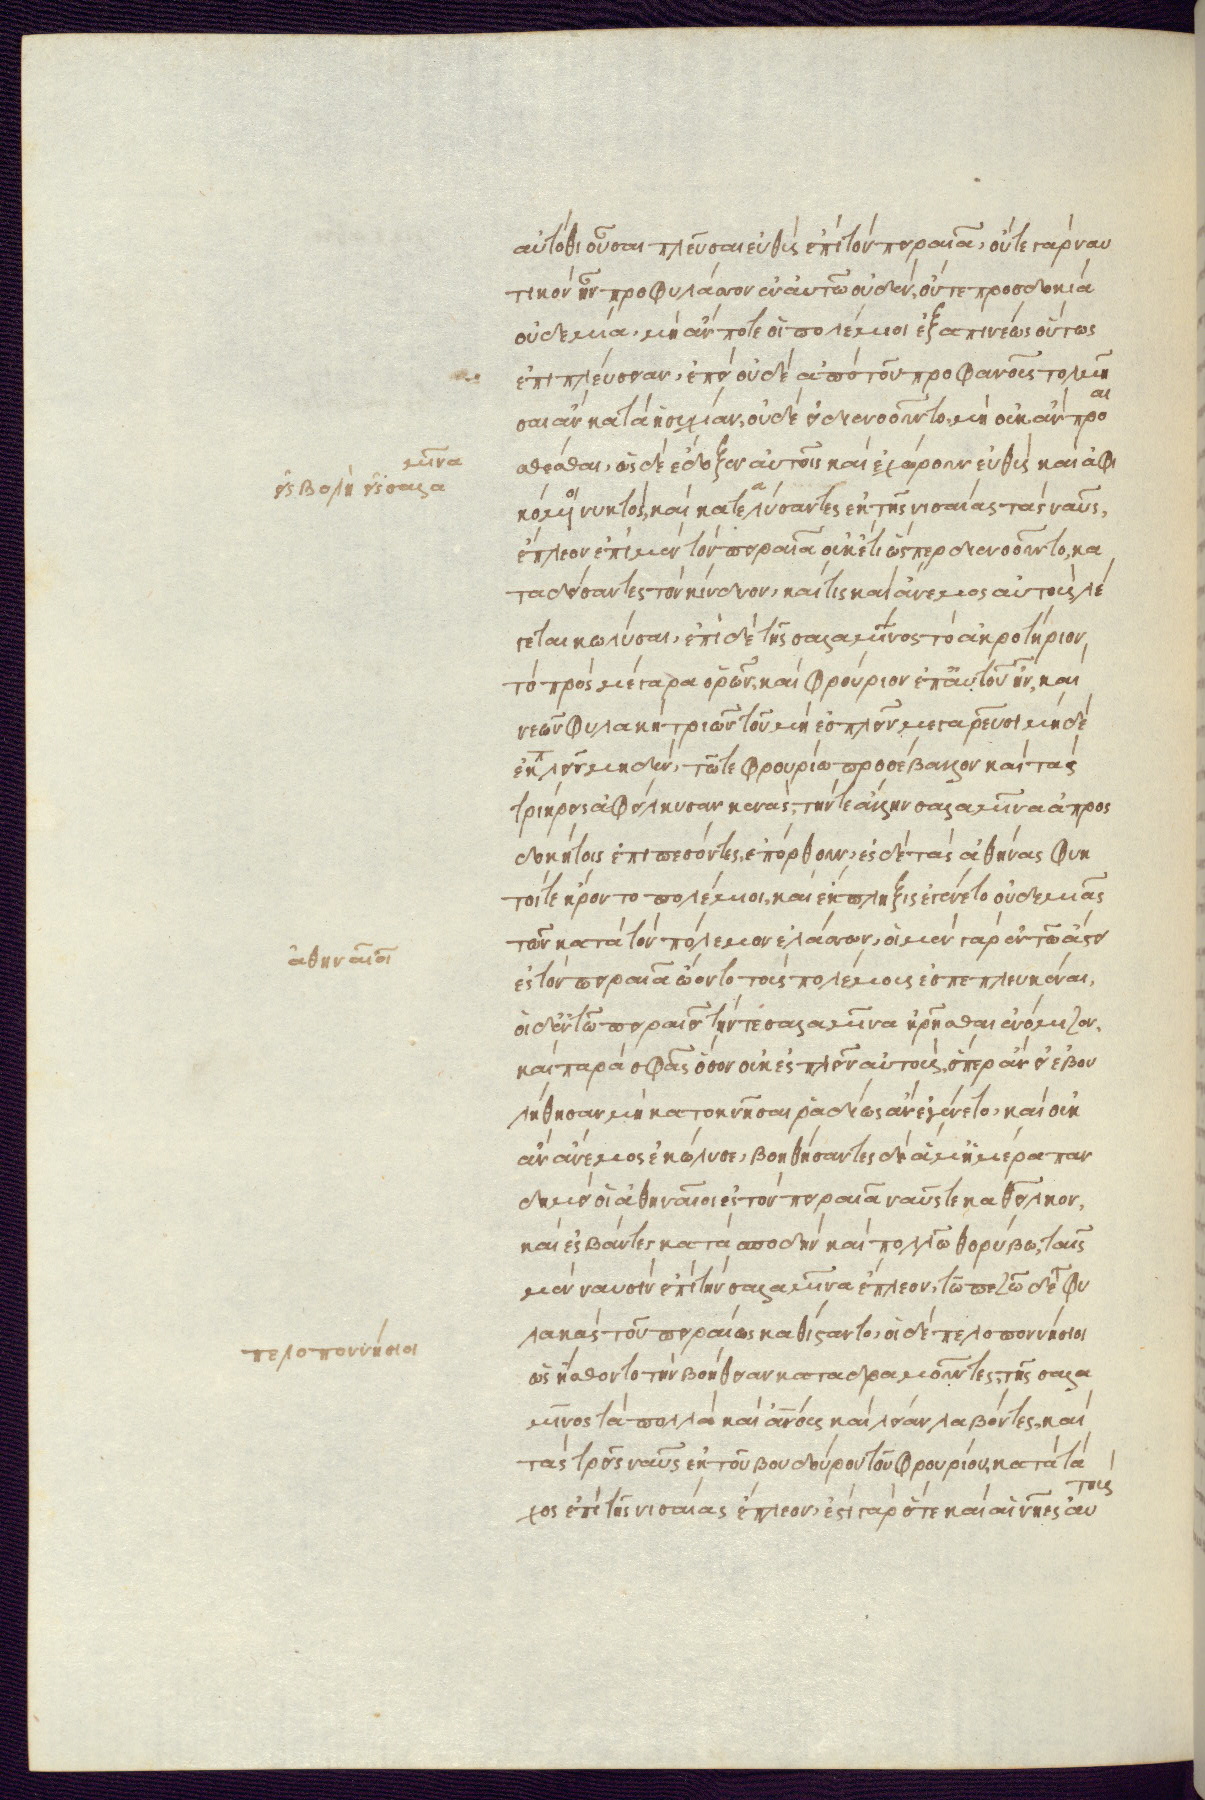 αὐτόθι οὖσαι πλεῦσαι εὐθὺς ἐπὶ τὸν πειραιᾶ, οὔτε γὰρ ναυ
τικὸν ἦν προφυλάσσον ἐν αὐτῶ οὐδέν, οὔτε προσδοκία
οὐδεμία, μὴ ἄν ποτε οἱ πολέμιοι ἐξαπιναίως οὕτως
ἐπιπλεύσειαν, ἐπεὶ οὐδὲ ἀπὸ τοῦ προφανοῦς τολμῆ
σαι ἂν κατὰ ἡσυχίαν, οὐδὲ εἰ διενοοῦντο, μὴ οὐκ ἂν προ
αι
σθέσθαι, ὡς δὲ ἔδοξεν αὐτοῖς καὶ ἐχώρουν εὐθὺς καὶ ἀφι
μῖνα
εἰσβολὴ εἰς σαλα
κόμενοι νυκτὸς, καὶ καθελκύσαντες ἐκ τῆς νισαίας τὰς ναῦς,
ἔπλεον ἐπὶ μὲν τὸν πειραιᾶ οὐκέτι ὥσπερ διενοοῦντο, κα
ταδείσαντες τὸν κίνδυνον, καί τις καὶ ἄνεμος αὐτοὺς λέ
γεται κωλῦσαι, ἐπὶ δὲ τῆς σαλαμῖνος τὸ ἀκροτήριον
τὸ πρὸς μέγαρα ὁρῶν, καὶ φρούριον ἐπ' αὐτοῦ ἦν, καὶ
νεῶν φυλακὴ τριῶν τοῦ μὴ ἐσπλεῖν μεγαρεῦσι μηδὲ
ἐκπλεῖν μηδέν, τῶ τε φρουρίω προσέβαλλον καὶ τὰς
τριήρεις ἀφείλκυσαν κενὰς, τήν τε ἄλλην σαλαμῖνα ἀπροσ
δοκήτοις ἐπιπεσόντες, ἐπόρθουν, ἐς δὲ τὰς ἀθήνας φρυκ
τοί τε ἤροντο πολέμιοι, καὶ ἔκπληξις ἐγένετο οὐδεμιᾶς
τῶν κατὰ τὸν πόλεμον ἐλάσσων, οἱ μὲν γὰρ ἐν τῶ ἄστει
ἀθηναῖοι
ἐς τὸν πειραιᾶ ᾤοντο τοὺς πολεμίους ἐσπεπλευκέναι,
οἱ δ' ἐν τῶ πειραιεῖ τήν τε σαλαμῖνα ἡρῆσθαι ἐνόμιζον,
καὶ παρὰ σφᾶς ὅσον οὐκ ἐσπλεῖν αὐτοὺς, ὅπερ ἂν εἰ ἐβου
λήθησαν μὴ κατοκνῆσαι ῥαδίως ἂν ἐγένετο, καὶ οὐκ
ἂν ἄνεμος ἐκώλυσε, βοηθήσαντες δὲ ἅμ' ἡμέρα παν
δημεὶ οἱ ἀθηναῖοι ἐς τὸν πειραιᾶ ναῦς τε καθεῖλκον,
καὶ ἐσβάντες κατὰ σπουδὴν καὶ πολλῶ θορύβω, ταῖς
μὲν ναυσὶν ἐπὶ τὴν σαλαμῖνα ἔπλεον, τῶ πεζῶ δὲ φυ
λακὰς τοῦ πειραιῶς καθίσαντο, οἱ δὲ πελοποννήσιοι
πελοποννήσιοι
ὡς ᾔσθοντο τὴν βοήθειαν καταδραμόντες, τῆς σαλα
μῖνος τὰ πολλὰ καὶ ἀνθρώπους καὶ λείαν λαβόντες, καὶ
τὰς τρεῖς ναῦς ἐκ τοῦ βουδόρου τοῦ φρουρίου, κατὰ τά
χος ἐπὶ τῆς νισαίας ἔπλεον, ἔστι γὰρ ὅτε καὶ αἱ νῆες αὐ
τοὺς